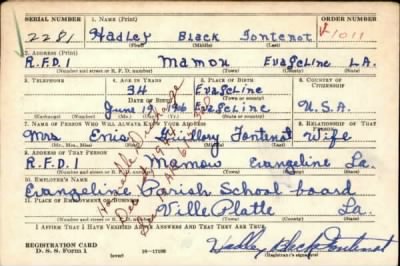 SERIAL NUMBER 1. NAME (Print) ORDER NUMBER
2281 Hadley Black Fontenot 1011
(First) (Middle) (Last)
2. ADDRESS (Print)
R.F.D.1 Mamou Evageline LA.
(Number and street or R. F. D. number) (Town) (County) (State)
3. TELEPHONE 4. AGE IN YEARS 5. PLACE OF BIRTH 6. COUNTRY OF CITIZENSHIP
34 Evageline
DATE OF BIRTH (Town or county)
June 19 Evageline U.S.A.
(Exchange) (Number) (Mo.) (Day) (Yr.) (State or country)
7. NAME OF PERSON WHO WILL ALWAYS KNOW YOUR ADDRESS 8. RELATIONSHIP OF THAT PERSON
Mrs. Enis Guillory Fontenot Wife
(Mr., Mrs., Miss) (First) (Middle) (Last)
9. ADDRESS OF THAT PERSON
R.F.D.1 Mamou Evangeline La.
(Number and street or R. F. D. number) (Town) (County) (State)
10. EMPLOYER'S NAME
Evangeline Parish School board
11. PLACE OF EMPLOYMENT OR BUSINESS
Ville Platte La.
(Number and street or R. F. D. number) (Town) (County) (State)
I AFFIRM THAT I HAVE VERIFIED ABOVE ANSWERS AND THAT THEY ARE TRUE.
REGISTRATION CARD
D. S. S. Form 1 (over) Hadley Black Fontenot
(Registrant's signature)
Honorable Discharge